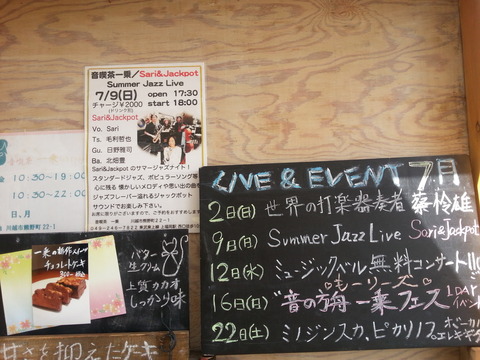 音喫茶一乗／Sari&Jackpot
Summer Jazz Live
7/9(日) open 17:30
チャージ¥2000 start 18:00
(ドリンク別)
Sari&Jackpot
Vo. Sari
Ts. 毛利哲也
Gu. 日野雅司
Ba. 北畑豊
Sari&Jackpotのサマージャズナイト!
スタンダードジャズ、ポピュラーソング等
心に残る 懐かしいメロディや思い出の曲を
ジャズフレーバー溢れるジャックポット
サウンドでお楽しみ下さい。
10:30~19:00
10:30~22:00
日、月
一乗の新作スイーツ
チョコレートケーキ
バター
生クリーム
上質カカオ
しっかり味
甘さを抑えたケーキ
LIVE & EVENT 7月
2日(日) 世界の打楽器奏者 蔡怜雄
9日(日) Summer Jazz Live Sari&Jackpot
12日(水) ミュージックベル無料コンサート!!
もーリーズ
16日(日) "音の方舟 一乗フェス 1DAY イベント
22日(土) ミノジンスカ、ピカリノフ ボーカル エレキギタ